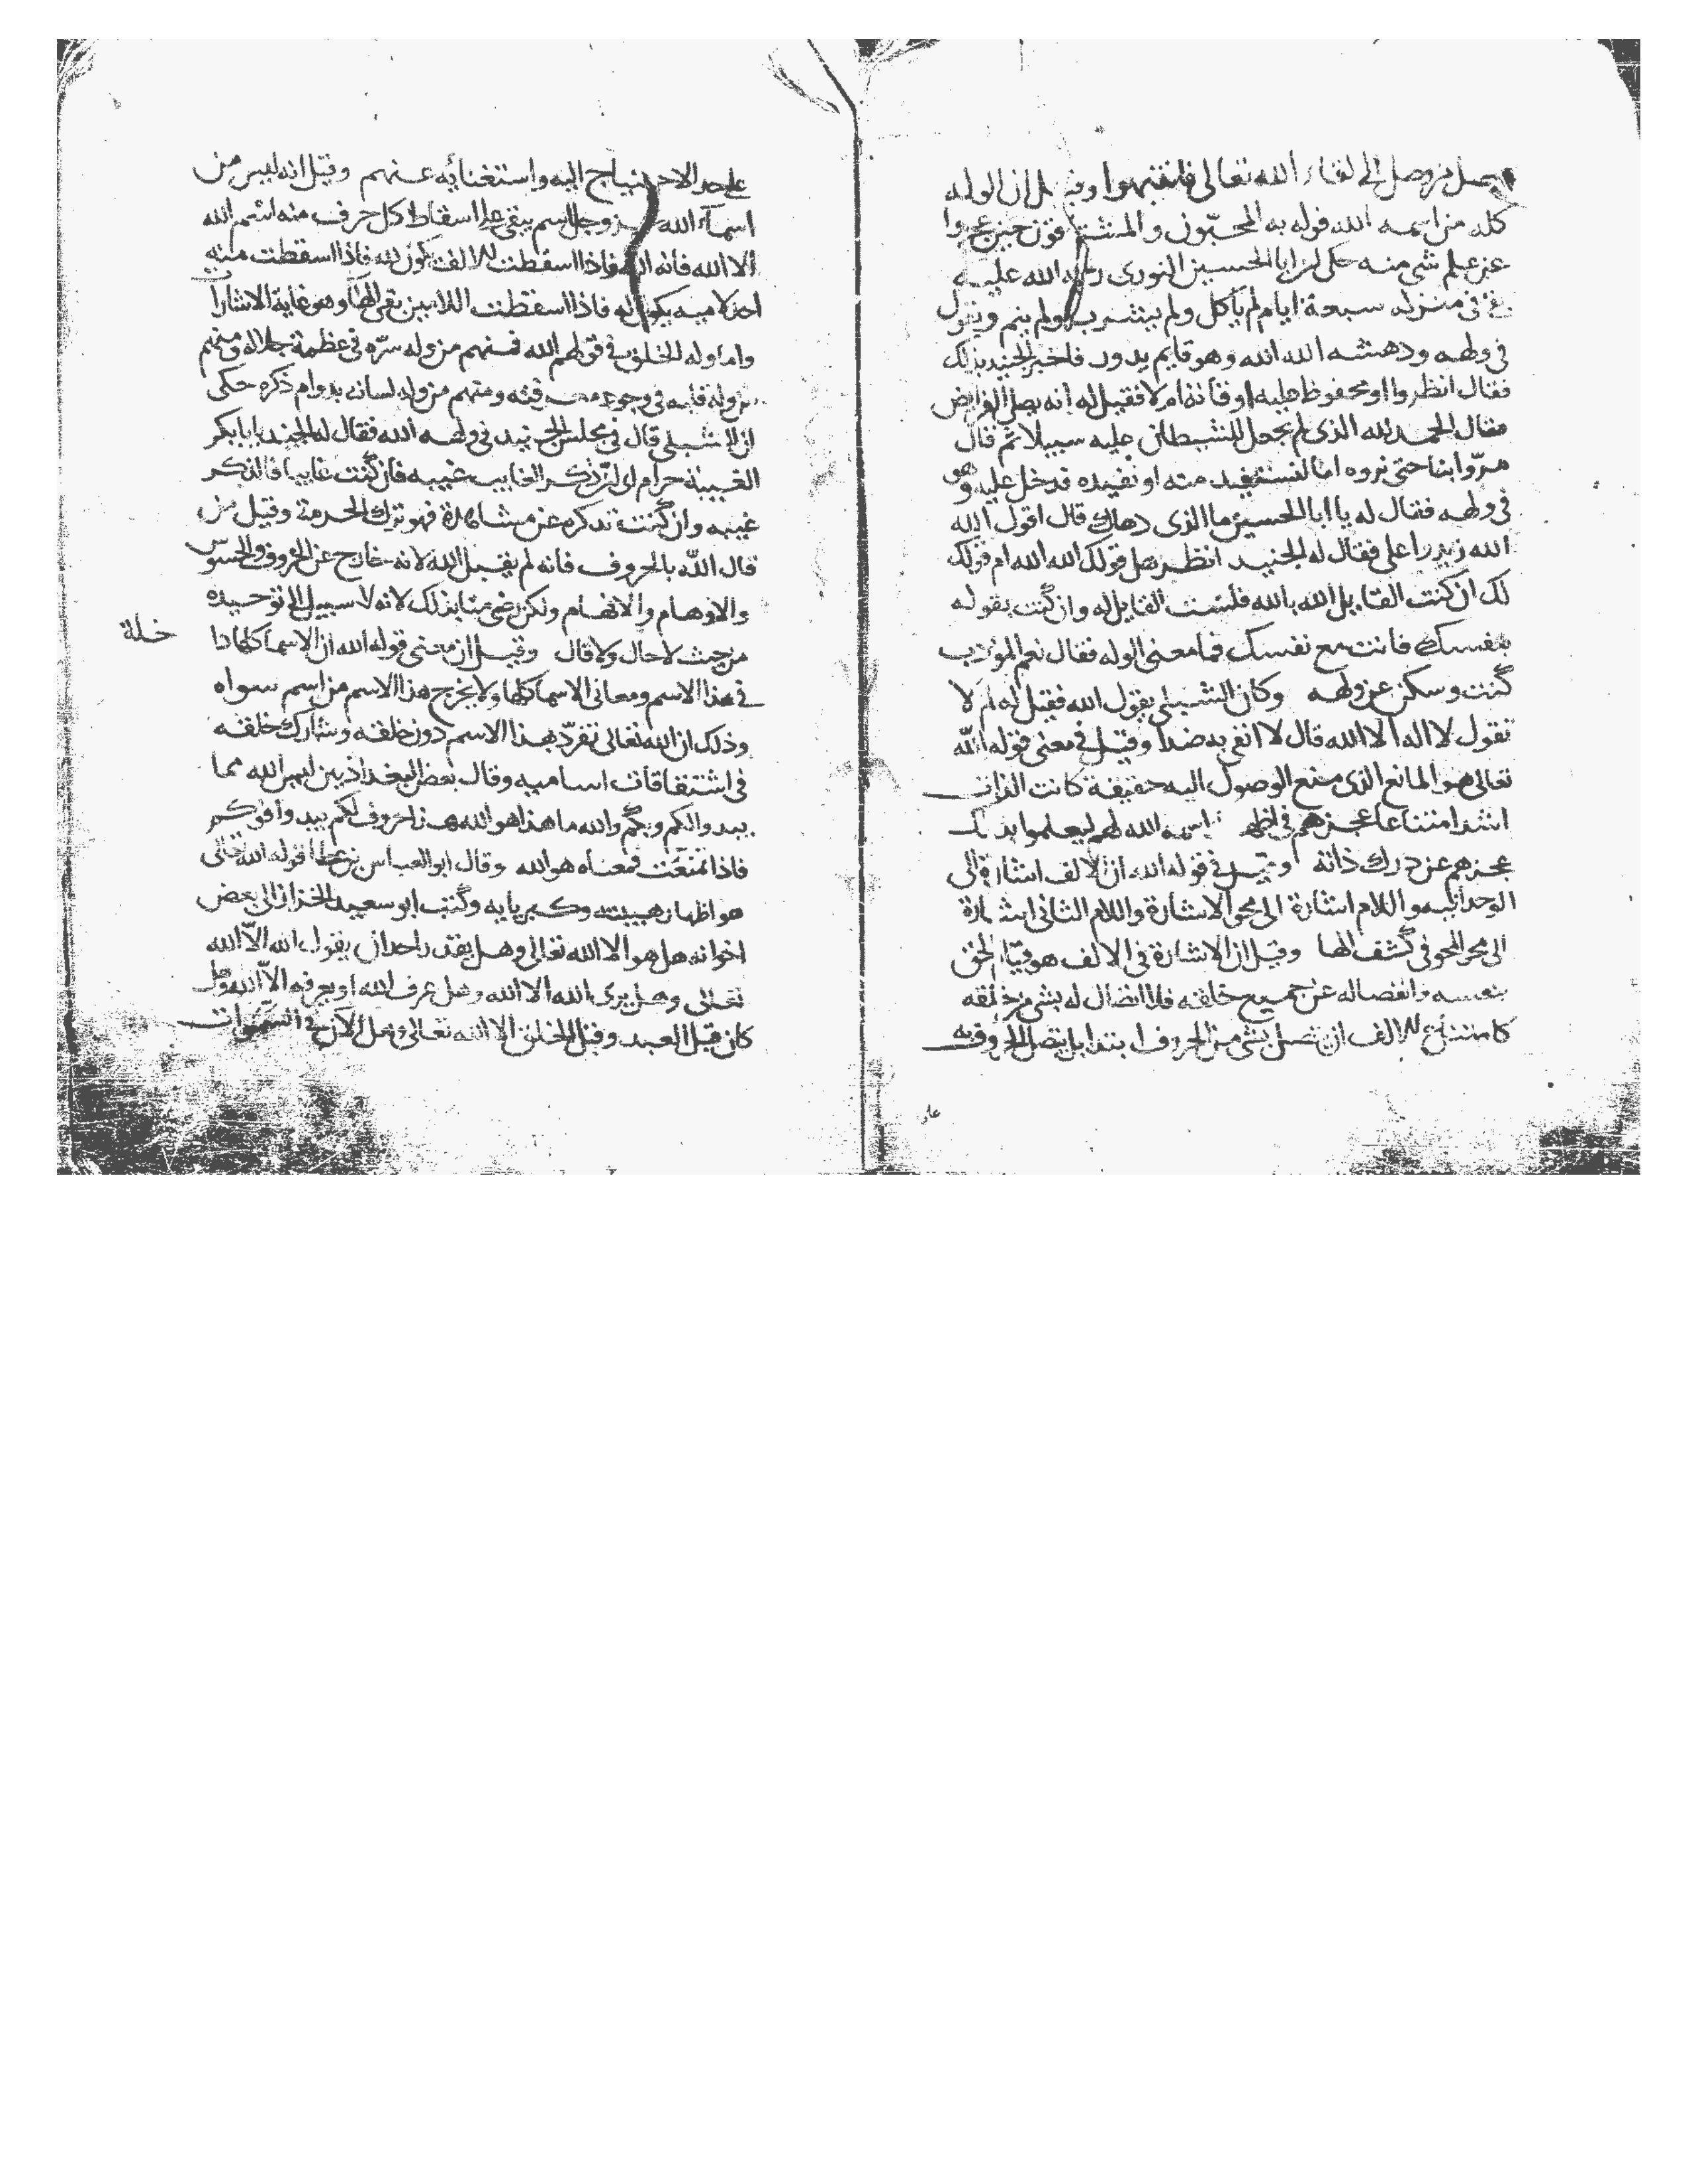 يصل من وصل الى لقاء الله تعالى فانتبهوا وقيل ان الوله
كله من اسمه الله فوله به المحبّون والمشتاقون حين عجزوا
عن علم شى منه حكى ان ابا الحسين النورى رحمة الله عليه
بقى فى منزله سبعة ايام لم ياكل ولم يشرب ولم ينم ويقول
فى ولهه ودهشه الله الله وهو قايم يدور فاخبر الجنيد بذلك
فقال انظروا امحفوظ عليه اوقاته ام لا فقيل له انه يصلى الفرايض
فقال الحمد لله الذى لم يجعل للشيطان عليه سبيلا ثم قال
مرّوا بنا حتى نزوره اما نستفيد منه او نفيده فدخل عليه وهو
فى ولهه فقال له يا ابا الحسين ما الذى دهاك قال اقول الله
الله زيدوا على فقال له الجنيد انظر هل قولك الله الله ام قولك
لك ان كنت القايل الله بالله فلست القايل له وان كنت بقوله
بنفسك فانت مع نفسك فما معنى الوله فقال نعم المؤدب
كنت وسكن عن ولهه وكان الشبلى يقول الله فقيل له لم لا
تقول لا اله الا الله قال لا انفى به ضدا وقيل فى معنى قوله الله
تعالى هو المانع الذى منع الوصول اليه حقيقة كانت الذات
اشد امتناعا عجزهم فى اسمه الله لهم ليعلموا بذلك
عجزهم عن درك ذاته وقيل فى قوله الله ان الالف اشارة الى
الوحدانيه واللام اشارة الى محو الاشارة واللام الثانى اشارة
الى محو المحو فى كشف الها وقيل ان الاشارة فى الالف هو قيام الحق
بنفسه وانفصاله عن جميع خلقه فلا اتصال له بشى من خلقه
كامتناع الالف ان تتصل بشى من الحروف ابتدا بل يتصل الحروف به
على
على حد الاحتياج اليه واستغنائه عنهم وقيل انه ليس من
اسماء الله عز وجل اسم يبقى على اسقاط كل حرف منه اسم الله
الا الله فانه الله فاذا اسقطت الالف يكون لله فاذا اسقطت منه
احد لاميه يكون له فاذا اسقطت اللامين بقى الها وهو غاية الاشارات
واما وله الخلق فى قولهم الله فمنهم من وله سرّه فى عظمة جلاله ومنهم
من وله قلبه فى وجود معرفته ومنهم من وله لسانه بدوام ذكره حكى
ان الشبلى قال فى مجلس الجنيد فى ولهه الله فقال له الجنيد يابا بكر
الغيبة حرام اى ان ذكر الغايب غيبه فان كنت غايبا فالذكر
غيبه وان كنت تذكره عن مشاهدة فهو ترك الحرمة وقيل من
قال الله بالحروف فانه لم يقبل الله لانه خارج عن الحروف والحسوس
والاوهام والافهام ولكن رضى منا بذلك لانه لا سبيل الى توحيده
من حيث لا حال ولا قال وقيل ان معنى قوله الله ان الاسما كلها دا
خلة
فى هذا الاسم ومعانى الاسما كلها ولا يخرج هذا الاسم من اسم سواه
وذلك ان الله تعالى تفرّد بهذا الاسم دون خلقه وشارك خلقه
فى اشتقاقات اساميه وقال بعض البغداذيين ليس الله مما
يبدو الكم وبكم والله ما هذا هو الله هذا حروف لكم يبدو افوكم
فاذا تمنعت فمعناه هو الله وقال ابو العباس بن عطا قوله الله تعالى
هو اظهار هيبته وكبريايه وكتب ابو سعيد الخراز الى بعض
اخوانه هل هو الا الله تعالى وهل يقدر احد ان يقول الله الا الله
تعالى وهل يرى الله الا الله وهل عرف الله او يعرفه الا الله وهل
كان قبل العبد وقبل الخلق الا الله تعالى وهل الان فى السموات